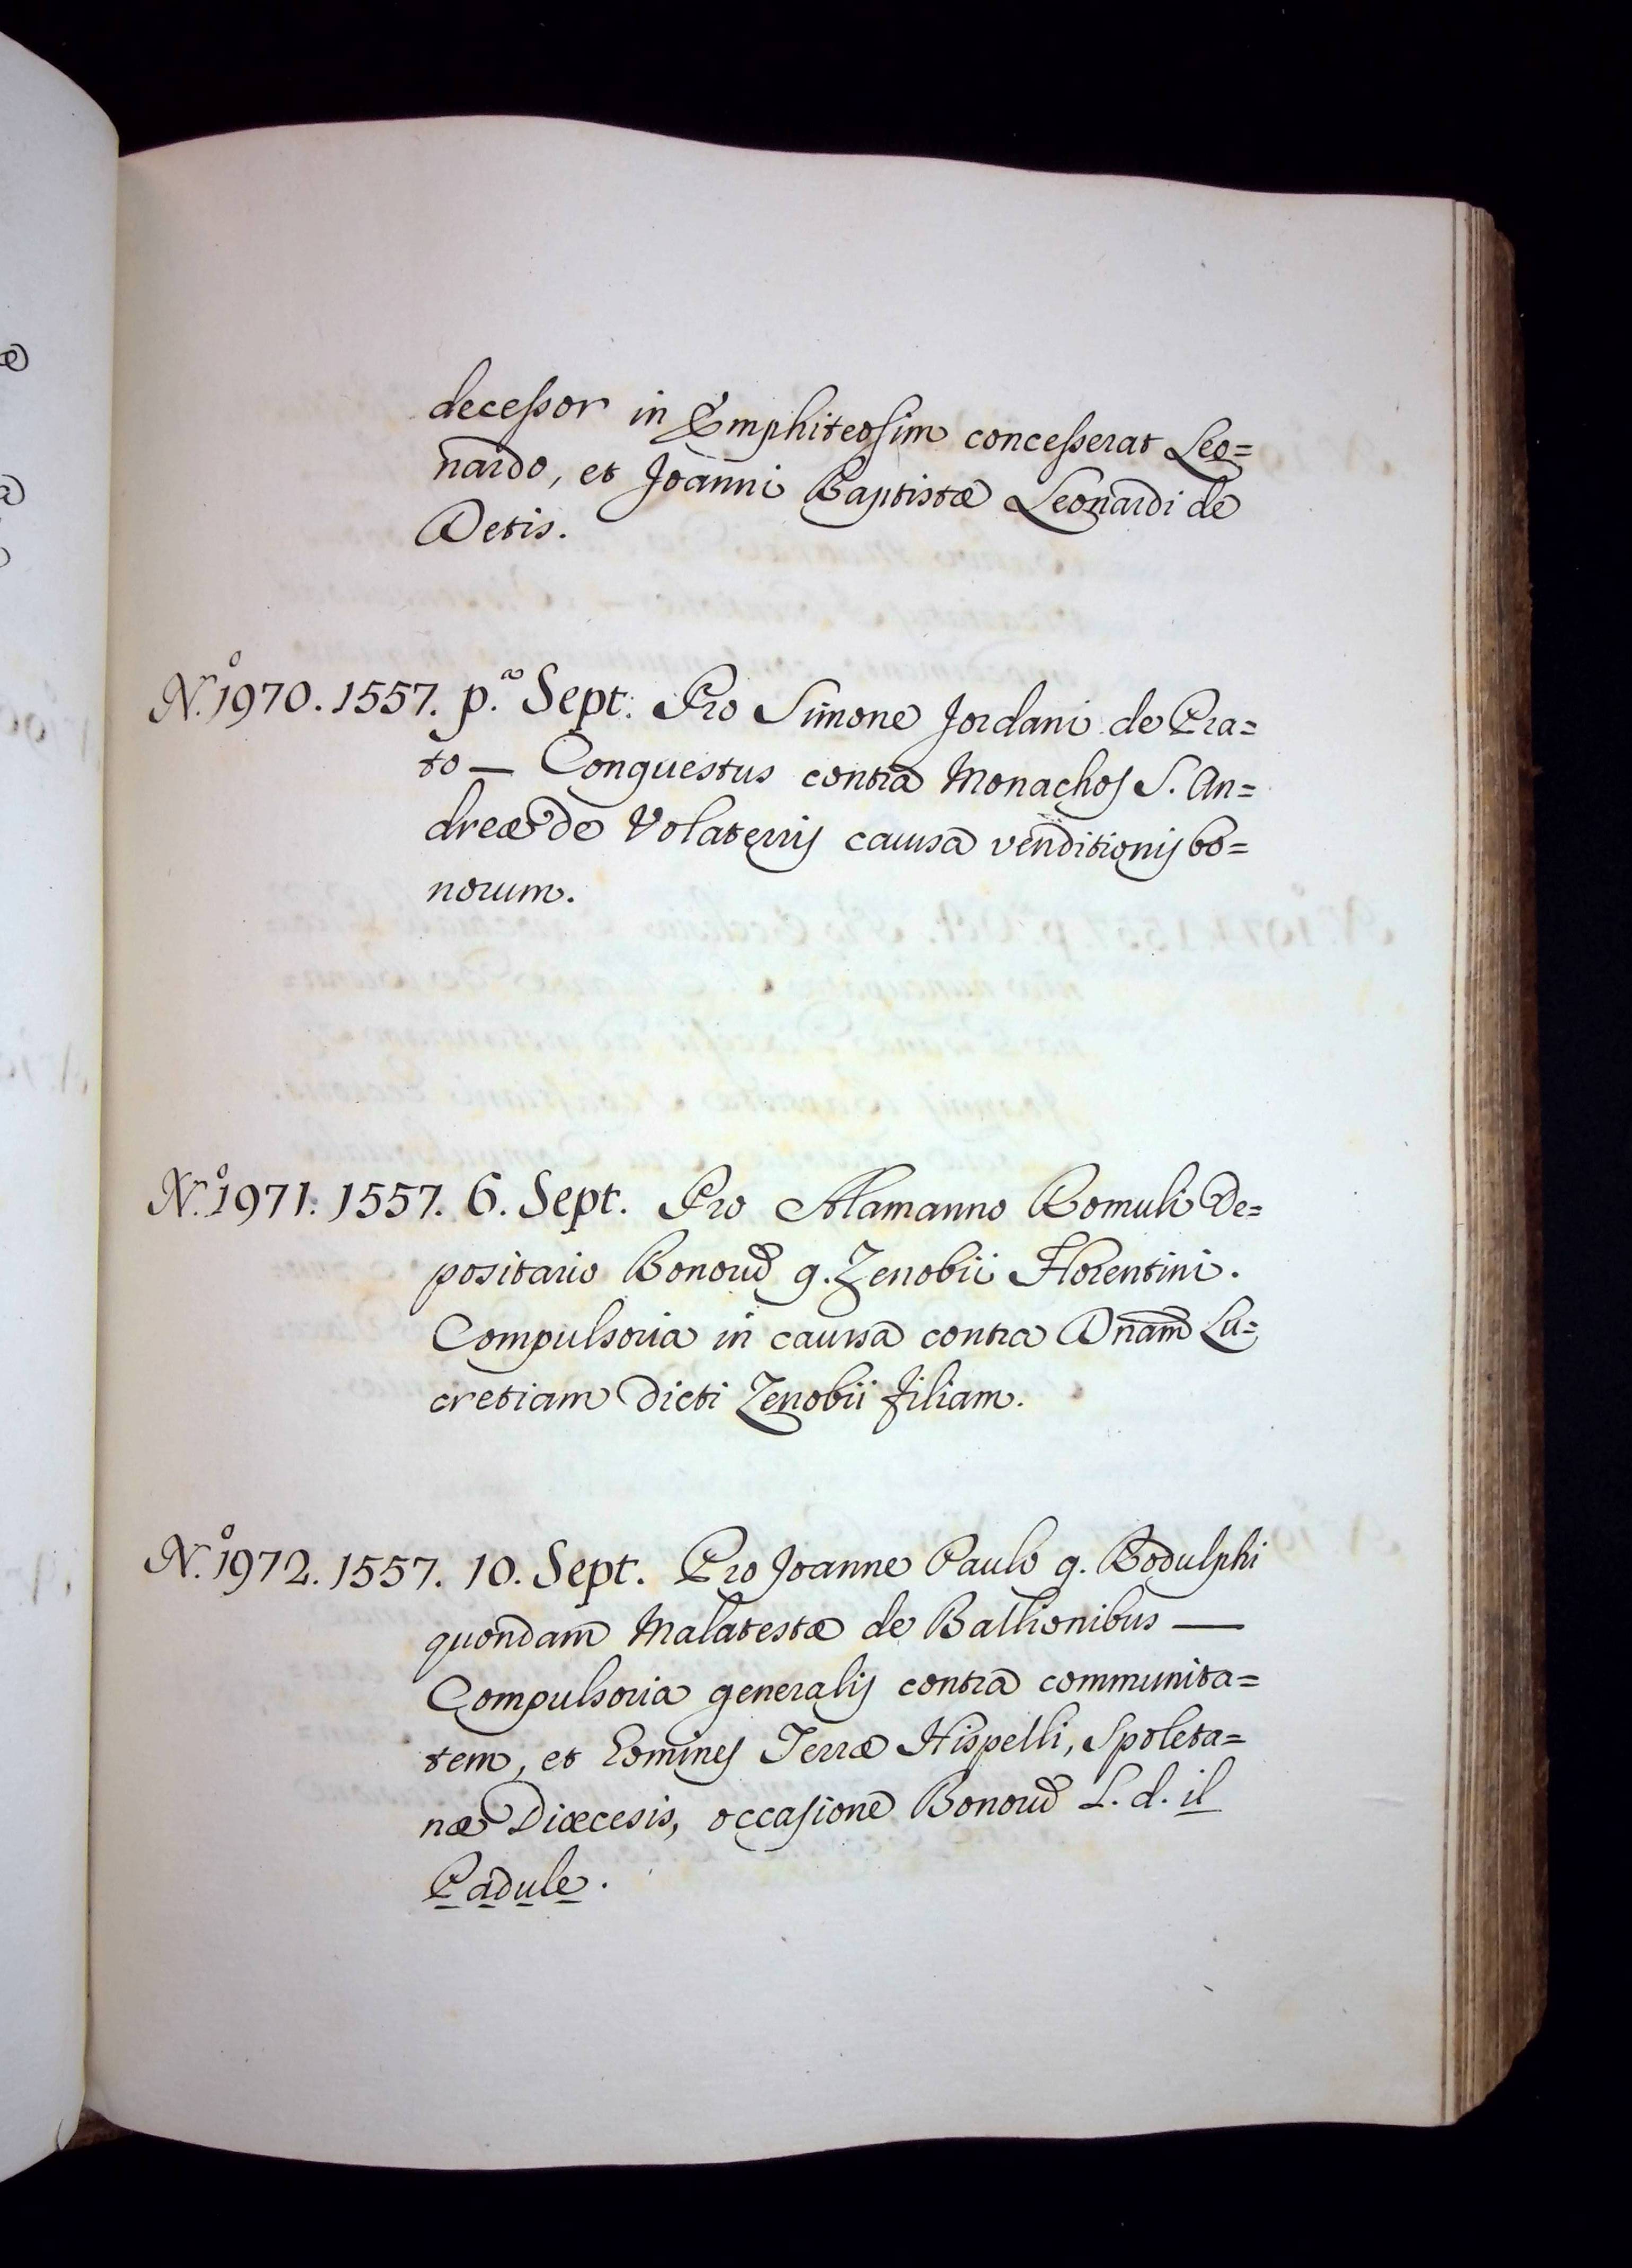 decessor in Emphiteosim concesserat Leo=
nardo, et Joanni Baptistæ Leonardi de
Detis.
N.º 1970. 1557. p.º Sept. Pro Simone Jordani de Pra=
to — Conquestus contra Monachos S. An=
dreæ de Volaterris causa venditionis bo=
norum.
N.º 1971. 1557. 6. Sept. Pro Alamanno Romuli De=
positario Bonorum q. Zenobii Florentini.
Compulsoria in causa contra Dnam Lu=
cretiam dicti Zenobii filiam.
N.º 1972. 1557. 10. Sept. Pro Joanne Paulo q. Rodulphi
quondam Malatestæ de Ballionibus —
Compulsoria generalis contra communita=
tem, et Homines Terræ Hispelli, Spoleta=
næ Diœcesis, occasione Bonorum L. d. il
Padule.